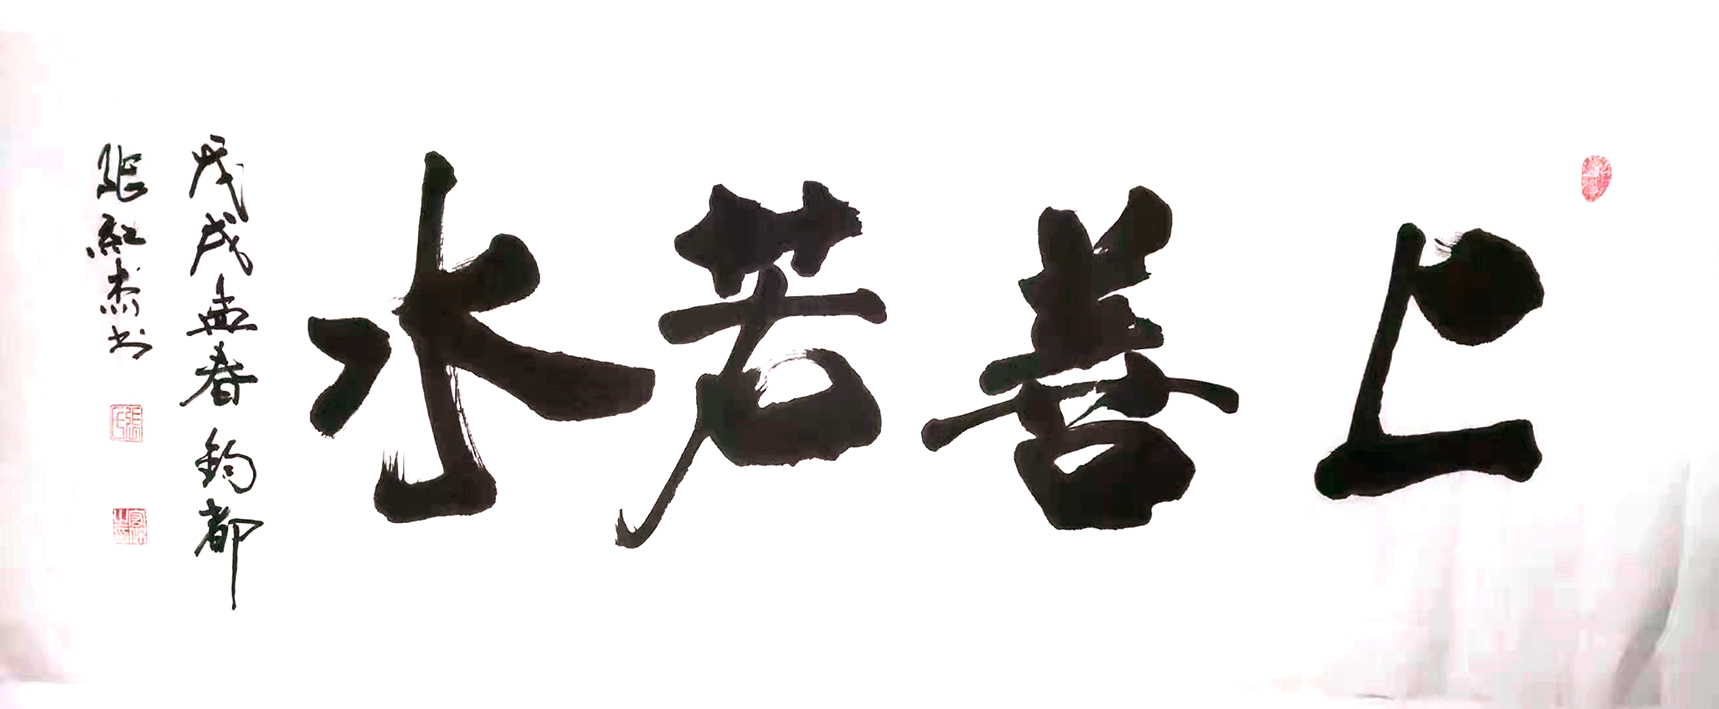 上善若水
戊戌孟春钧都
张红杰书